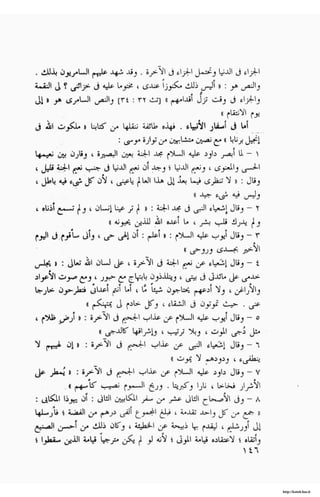 الجزاء فى الدنيا وتحتمل الجزاء فى الآخرة . وقد شهد عليهم السامريون بذلك .
والنص هو : « أليس ذلك مكنوزاً عندى ، مختوما عليه فى خزائنى ؟ لى النقمة
والجزاء فى وقت تزل أقدامهم » [ تث ٣٢ : ٣٤ ] والنص السامرى هو « إلى
يوم الانتقام »
أما فى أسفار الأنبياء . فهذه طائفة ننقلها من كتابنا « ملكوت الله فى
إنجيل برنابا » مع نصين متشابهين من توراة موسى :
١ – لما أبصر داود عليه السلام مجد الجنة بعين البصيرة ، وقارن بين نعيمها
الحسى والمعنوى ، ونعيم الدنيا ؛ وجد أن نعيم الدنيا فى جنب نعيم الجنة قليل ،
وقال : « لا تنظرى فيما بعد إلى هذا العالم ياعينى ، لأن كل شىء فيه باطل ،
وليس فيه شىء جيد »
٢ – وقال إشعياء النبى فى مجد الجنة : « لم تر عينا إنسان ، ولم تسمع أذناه ،
ولم يدرك قلب بشر ، ما أعده الله للذين يحبونه »
٣ – وقال أيوب عليه السلام : « أعلم : أن إلهى حى ، وأنى سأقوم فى اليوم
الأخير بجسدى وروحى »
٤ – وقال إشعياء عن نعيم الجنة فى الآخرة ، على لسان الله تعالى : « يجلس
خدمى على مائدتى فى بيتى ، ويتلذذون بابتهاج مع حبور ، ومع صوت الأعواد
والأراغن ، ولا أدعهم يحتاجون شيئاً مّا ، أما أنتم أعدائى فتطرحون خارجا
عنى . حيث تموتون فى الشقاء ، وكل خادم لى يمتهنكم »
٥ – وقال أيوب عليه السلام عن عذاب الجحيم فى الآخرة : « أرض ظلام ،
مثل دُجى الموت ، وبلا ترتيب ، وإشراقها كالدجى »
٦ – وقال إشعياء النبى عن عذاب الجحيم فى الآخرة : « إن لهيبهم لا
ينطفىء ، ودودهم لا يموت »
٧ – وقال داود عليه السلام عن عذاب الجحيم فى الآخرة : « يُمطر على
الأشرار فخاخا ، نارا وكبريتا . وريح السموم نصيب كأسهم »
٨ – وفى الأصحاح الثانى عشر من سفر المكابيين الثانى : أن يهوذا المكابى :
« جمع من كل واحد تقدمة ، فبلغ المجموع ألفى درهم من الفضة ؛ فأرسلها
إلى أورشليم ، ليقدم بها ذبيحة عن الخطيئة ، وكان ذلك من أحسن الصنيع
وأتقاه ؛ لاعتقاده قيامة الموتى ؛ لأنه لو لم يكن مترجياً قيامة الذين سقطوا ؛
١٤٦
http://kotob.has.it